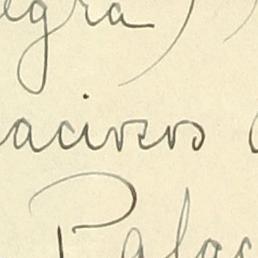 egra)
aciozos
Palac